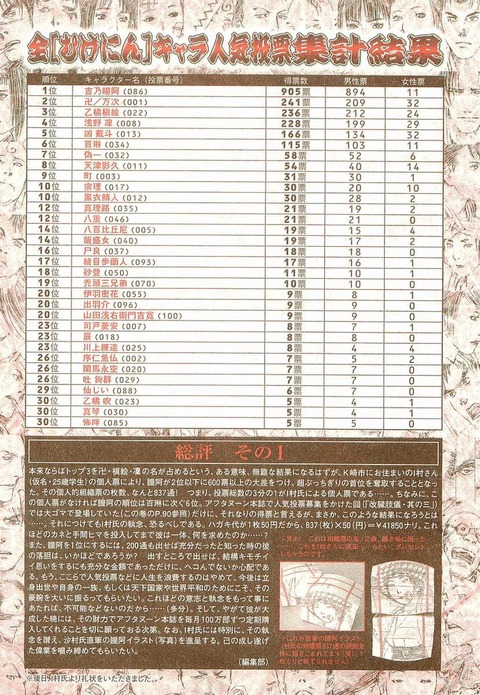 全[むげにん]キャラ人気投票集計結果
順位 キャラクター名(投票番号) 得票数 男性票 女性票
1位 吉乃瞳阿(086) 905票 894 11
2位 卍/万次(001) 241票 209 32
3位 乙橘槇絵(022) 236票 212 24
4位 浅野 凜(008) 228票 199 29
5位 凶 戴斗(013) 166票 134 32
6位 百琳(034) 115票 103 11
7位 偽一(032) 58票 52 6
8位 天津影久(011) 54票 40 14
9位 町(003) 31票 30 1
10位 宗理(017) 30票 20 10
10位 黒衣鯖人(012) 30票 28 2
12位 真理路(035) 21票 19 2
12位 八重(046) 21票 21 0
14位 八百比丘尼(005) 19票 15 4
14位 飯盛女(040) 19票 17 2
16位 尸良(037) 18票 18 0
17位 綾目歩蘭人(093) 17票 16 1
18位 砂登(050) 11票 10 1
19位 禿頭三兄弟(070) 10票 10 0
20位 伊羽密花(055) 9票 8 1
20位 出羽介(096) 9票 9 0
20位 山田浅右衛門吉寛(100) 9票 9 0
23位 司戸菱安(007) 8票 7 1
23位 辰(018) 8票 8 0
23位 川上練造(025) 8票 4 4
26位 序仁魚仏(002) 7票 5 2
26位 閑馬永空(020) 7票 7 0
26位 吐 鉤群(029) 7票 7 0
29位 仙じい(088) 6票 7 0
30位 乙橘 吹(023) 5票 4 1
30位 真琴(030) 5票 4 1
30位 怖畔(085) 5票 5 0
総評 その1
本来ならばトップ3を卍・槇絵・凜の名が占めるという、ある意味、無難な結果になるはずが、K崎市にお住まいのI村さん
(仮名・25歳学生)の個人票により、瞳阿が2位以下に600票以上の大差をつけ、超ぶっちぎりの首位を奪取することとなっ
た。その個人的組織票の枚数、なんと837通!つまり、投票総数の3分の1がI村氏による個人票である……。ちなみに、こ
の個人票がなければ瞳阿の順位は百琳に次ぐ6位。アフタヌーン本誌で人気投票募集をかけた回(『改臓肢義・其の五』)
では大ゴマで登場していた(この巻のP.89参照)だけに、それなりの得票と言えるが、まさか、このようなことになろうとは
……。それにつけてもI村氏の執念、恐るべしである。ハガキ代が1枚50円だから、837(枚)×50(円)=¥41850ナリ。これ
ほどのカネと手間ヒマを投入してまで彼は一体、何を求めたのか……?
また、瞳阿を1位にするには、200通も出せば充分だったと知った時の彼
の落胆は、いかほどであろうか?出すところで出せば、結構キモチイ
イ思いをするにも充分な金額であっただけに、ヘコんでないか心配であ
る。もう、ここらで人気投票などに人生を浪費するのはやめて、今後は立
身出世や自身の一族、もしくは天下国家や世界平和のためにこそ、その
豪腕を大いに振るってもらいたい。これほどの意志と執念をもって事に
あたれば、不可能などないのだから……(多分)。そして、やがて彼が大
成した暁には、その財力でアフタヌーン本誌を毎月100万部ずつ定期購
入してくれることを切に願っておる次第。なお、I村氏には特別に、その執
念を讃え、沙村氏直筆の瞳阿イラスト(写真)を進呈する。己の成し遂げ
た偉業を噛み締めてもらいたい。
(編集部)
※後日、I村氏より礼状をいただきました…。